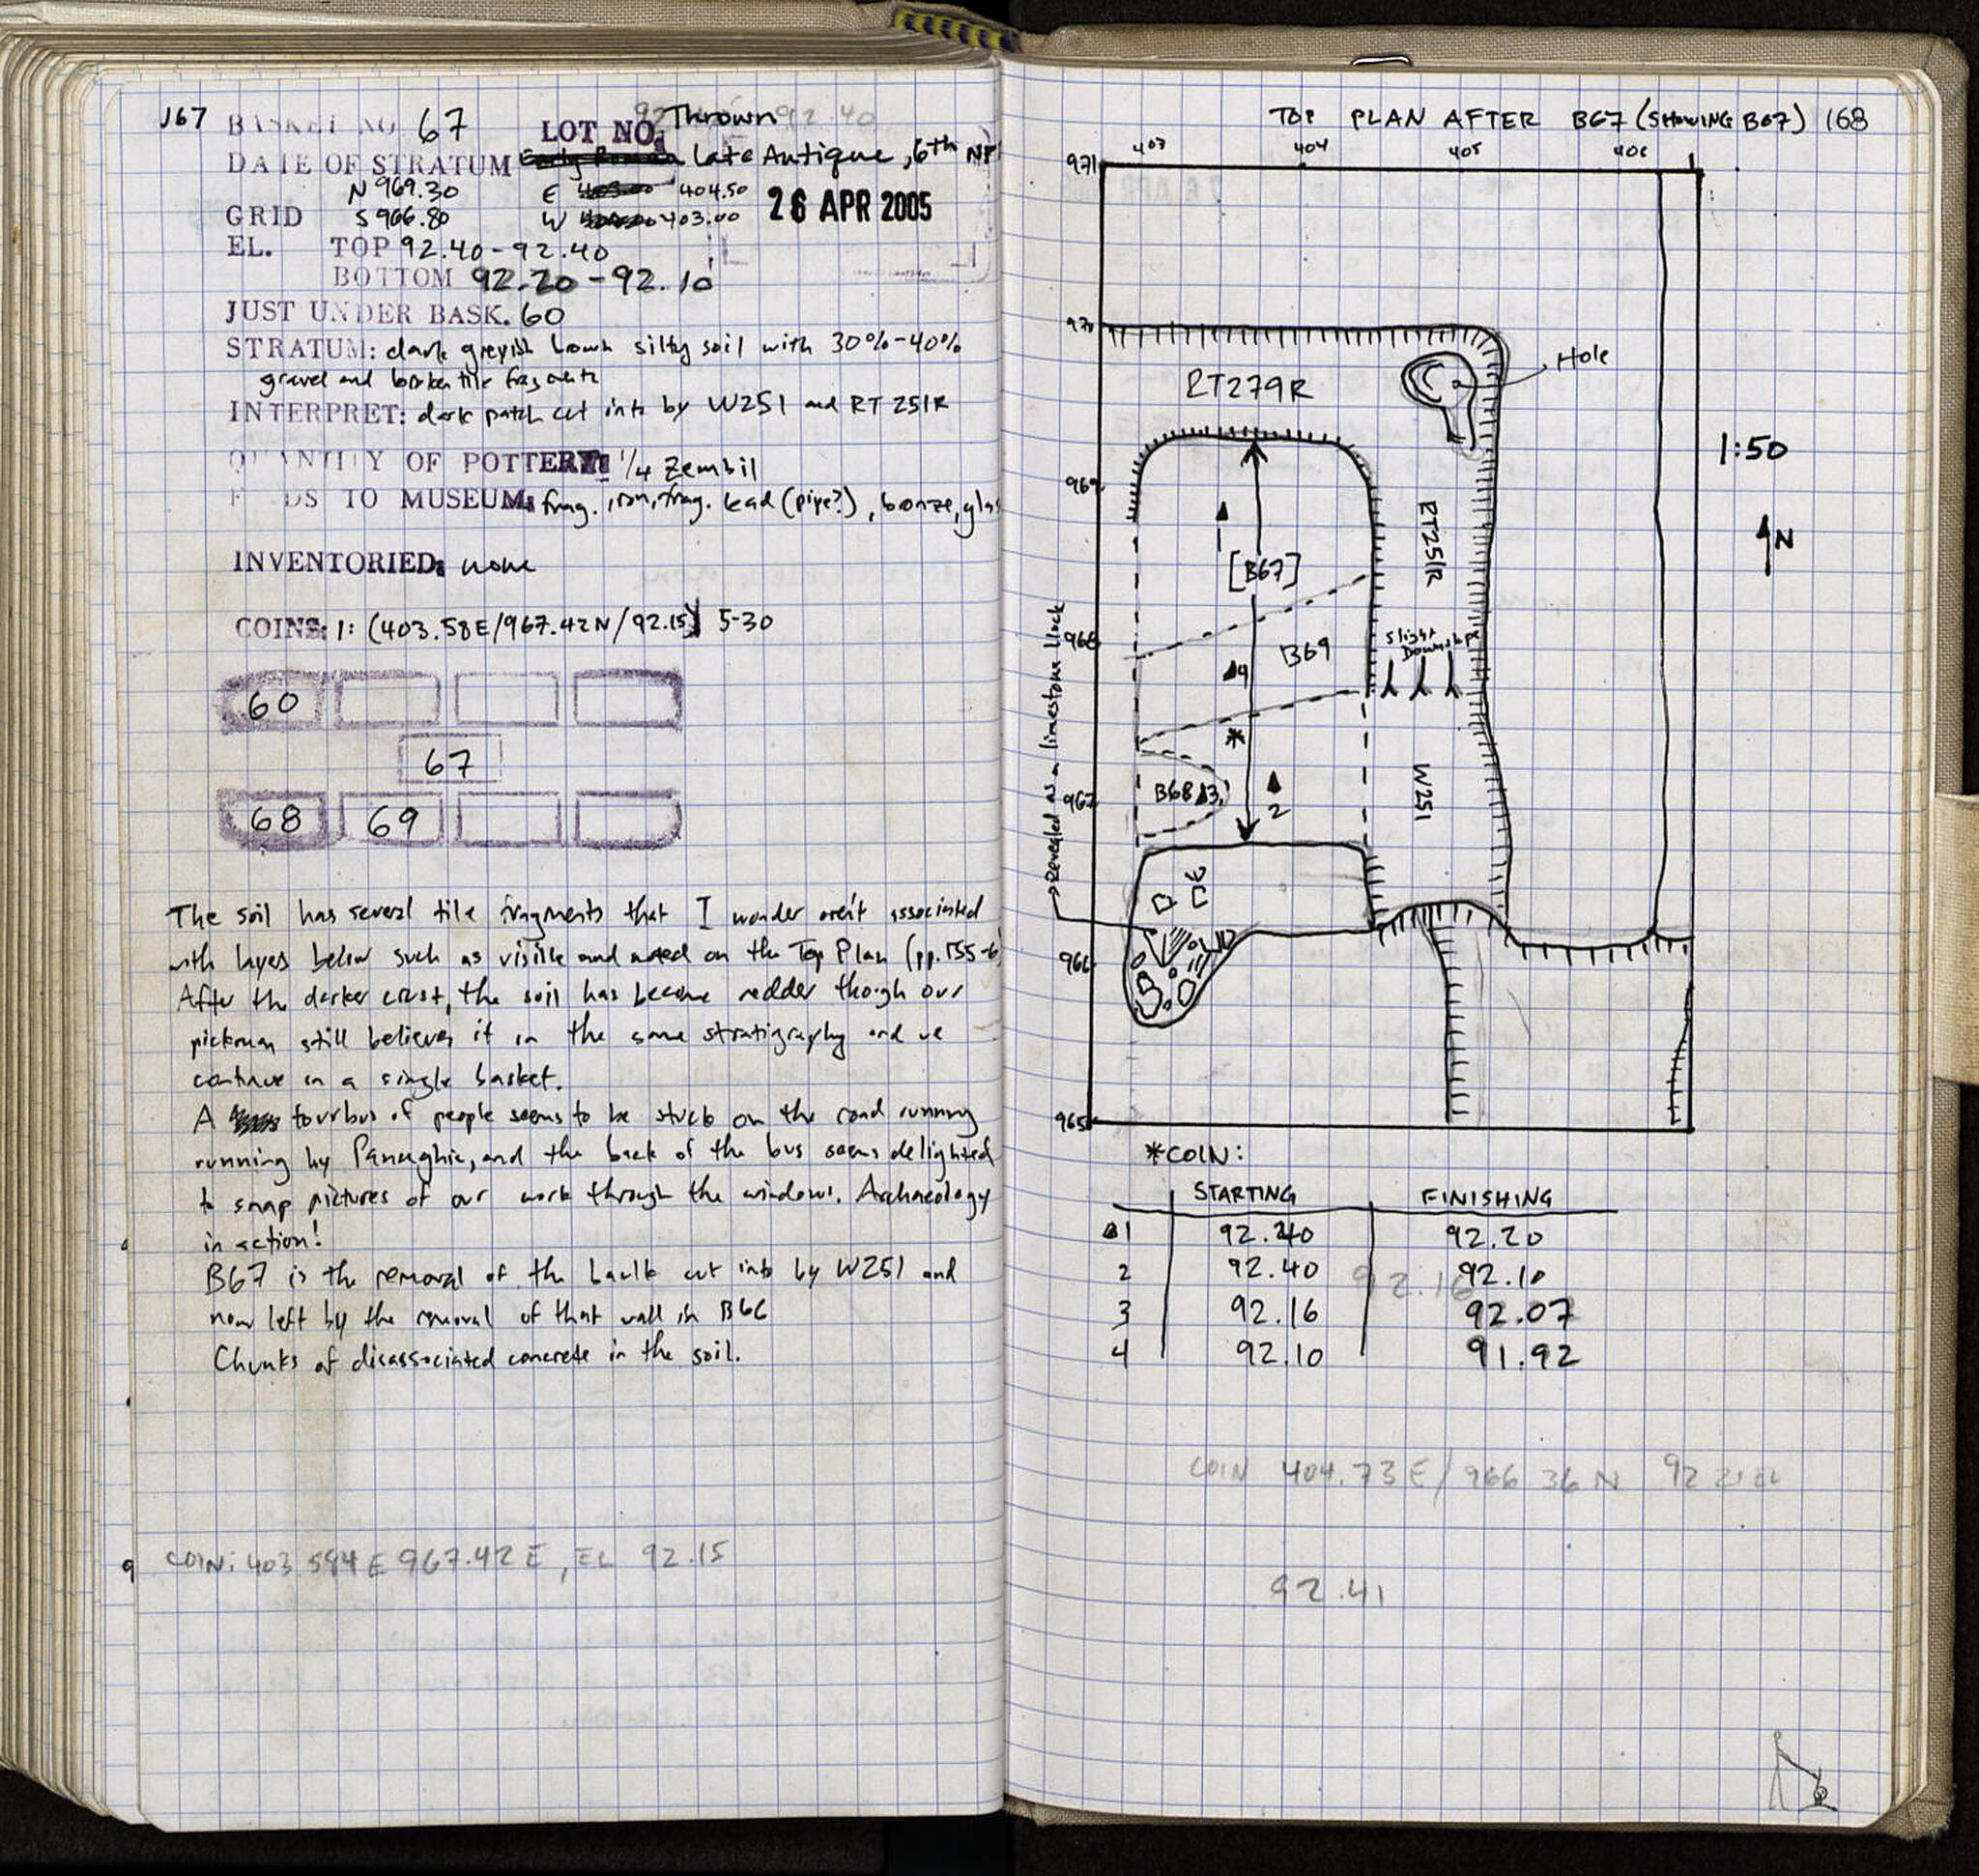 167 BASKET NO. 67 LOT NO. Thrown
DATE OF STRATUM Late Antique, 6th
N 969.30 E 404.50
GRID S 966.80 W 403.00 26 APR 2005
EL. TOP 92.40-92.40
BOTTOM 92.20-92.10
JUST UNDER BASK. 60
STRATUM: dark greyish brown silty soil with 30%-40%
gravel and broken tile fragments
INTERPRET: dark patch cut into by W251 and RT 251R
QUANTITY OF POTTERY: 1/4 Zembil
FINDS TO MUSEUM: frag. iron, frag. lead (pipe?), bronze, glas
INVENTORIED: none
COINS: 1: (403.58E/967.42N/92.15) 5-30
60
67
68 69
The soil has several tile fragments that I wonder aren't associated
with layers below such as visible and noted on the Top Plan (pp. 155-6
After the darker crust, the soil has become redder though our
pickman still believes it in the same stratigraphy and we
continue in a single basket.
A tourbus of people seems to be stuck on the road running
running by Panaghia, and the back of the bus seems delighted
to snap pictures of our work through the windows. Archaeology
in action!
B67 is the removal of the baulk cut into by W251 and
now left by the removal of that wall in B66
Chunks of disassociated concrete in the soil.
COIN: 403.584 E 967.42 E, EL 92.15
9
TOP PLAN AFTER B67 (SHOWING B67) 168
403 404 405 406
971
970
Hole
RT279R
1:50
969
RT251R
N
1
[B67]
968
B69
Slight
Downslope
4
*
W251
967
B68 3
2
Revealed as a limestone block
966
965
*COIN:
STARTING FINISHING
1 92.40 92.20
2 92.40 92.16 92.10
3 92.16 92.07
4 92.10 91.92
COIN 404.73 E/966 36 N 92
92.41